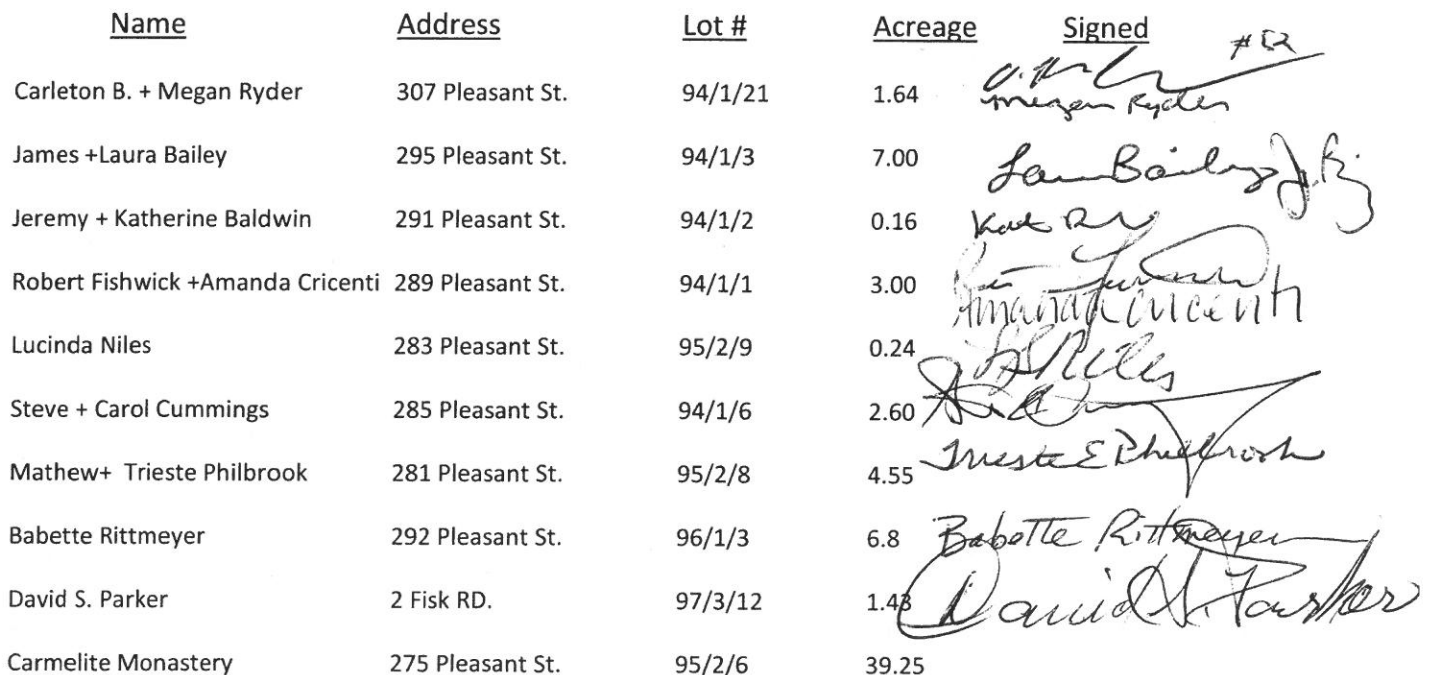 Name Address Lot # Acreage Signed
Carleton B. + Megan Ryder 307 Pleasant St. 94/1/21 1.64 Megan Ryder
James +Laura Bailey 295 Pleasant St. 94/1/3 7.00 Bailey
Jeremy + Katherine Baldwin 291 Pleasant St. 94/1/2 0.16 Kat
Robert Fishwick +Amanda Cricenti 289 Pleasant St. 94/1/1 3.00 Amanda Cricenti
Lucinda Niles 283 Pleasant St. 95/2/9 0.24
Steve + Carol Cummings 285 Pleasant St. 94/1/6 2.60
Mathew+ Trieste Philbrook 281 Pleasant St. 95/2/8 4.55 Trieste E Philbrook
Babette Rittmeyer 292 Pleasant St. 96/1/3 6.8 Babette Rittmeyer
David S. Parker 2 Fisk RD. 97/3/12 1.43 David S. Parker
Carmelite Monastery 275 Pleasant St. 95/2/6 39.25